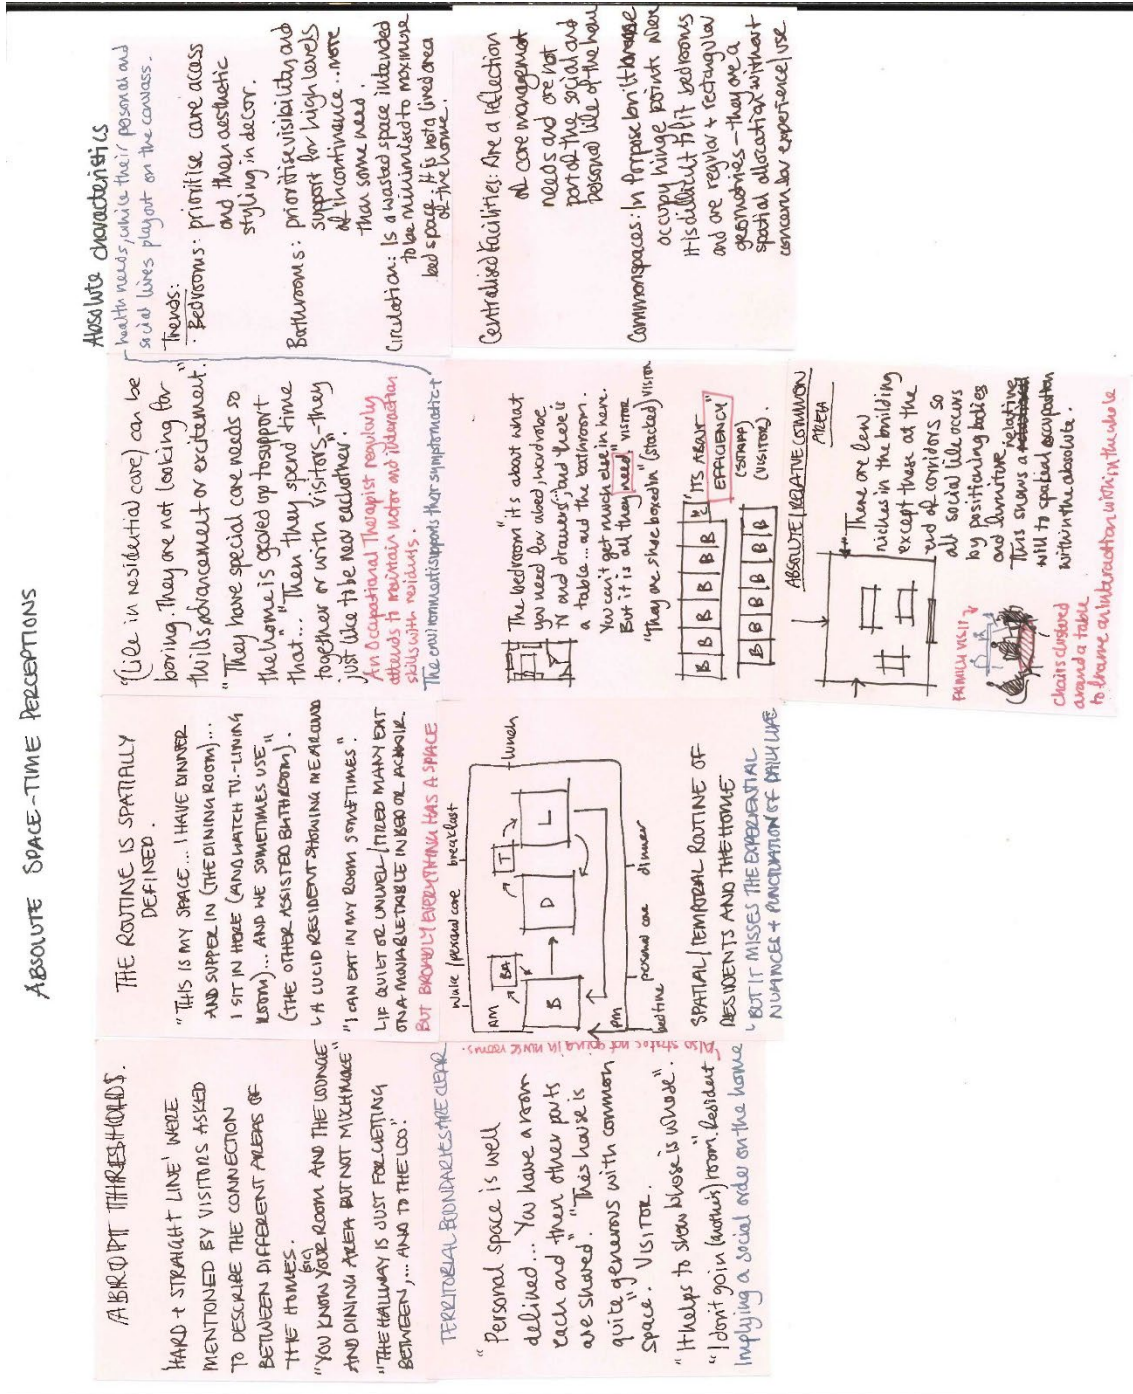 ABSOLUTE SPACE-TIME PERCEPTIONS
ABRUPT THRESHOLDS.
'HARD + STRAIGHT LINE' WERE
MENTIONED BY VISITORS ASKED
TO DESCRIBE THE CONNECTION
BETWEEN DIFFERENT AREAS OF
THE HOMES.
"YOU KNOW YOUR (BIG) ROOM AND THE LOUNGE
AND DINING AREA BUT NOT MUCH MORE"
"THE HALLWAY IS JUST FOR GETTING
BETWEEN,... AND TO THE LOO."
TERRITORIAL BOUNDARIES ARE CLEAR
"Personal space is well
defined... You have a room
each and then other parts
are shared. "This house is
quite generous with common
space". VISITOR.
"It helps to show whose is whose".
"I don't go in (another) room." Resident
"Also states not going in nurse rooms.
Implying a social order on the home
THE ROUTINE IS SPATIALLY
DEFINED.
"THIS IS MY SPACE... I HAVE DINNER
AND SUPPER IN (THE DINING ROOM)...
I SIT IN HERE (AND WATCH TV.-LIVING
ROOM)... AND WE SOMETIMES USE
(THE OTHER ASSISTED BATHROOM)."
↳ A LUCID RESIDENT SHOWING ME AROUND
"I CAN EAT IN MY ROOM SOMETIMES".
↳ IF QUIET OR UNWELL/TIRED MANY EAT
ON A MOVABLE TABLE IN BED OR A CHAIR.
BUT BROADLY EVERYTHING HAS A SPACE
wake/personal care breakfast
AM
BA
T
lunch
B
D
L
PM
bedtime personal care dinner
SPATIAL/TEMPORAL ROUTINE OF
RESIDENTS AND THE HOME
↳ BUT IT MISSES THE EXPERIENTIAL
NUANCES + PUNCTUATION OF DAILY LIFE
"(Life in residential care) can be
boring. They are not looking for
thrills, advancement or excitement."
"They have special care needs so
the home is geared up to support
that..." "Then they spend time
together or with visitors, - they
just like to be near eachother".
An Occupational Therapist regularly
attends to maintain motor and interaction
skills with residents.
The environment supports their symptomatic +
health needs, while their personal and
social lives playout on the canvass.
The bedroom "it's about what
you need for a bed, wardrobe
TV and drawers", and there is
a table... and the bathroom.
You can't get much else in here.
But it is all they need," visitor
"They are shoe boxed in" (stacked) visitor
B B B B B
B B B B B
"ITS ABOUT
EFFICIENCY"
(STAFF)
(VISITOR).
ABSOLUTE/RELATIVE COMMON
AREA
"There are few
niches in the building
except these at the
end of corridors so
all social life occurs
by positioning bodies
and furniture.
This shows a relative
will to spatial occupation
within the absolute.
FAMILY VISIT
chairs clustered
around a table
to frame an interaction within the whole
Absolute characteristics
Trends:
· Bedrooms: prioritise care access
and then aesthetic
styling in decor.
Bathrooms: prioritise visibility and
support for high levels
of incontinence .. more
than some need.
Circulation: Is a wasted space intended
to be minimised to maximise
bed space. It is not a lived area
of the home.
Centralised Facilities: Are a reflection
of care management
needs and are not
part of the social and
personal life of the home
Common spaces: In purpose built
occupy hinge points where
it is difficult to fit bedrooms
and are regular + rectangular
geometries - they are a
spatial allocation without
concern for experience/use